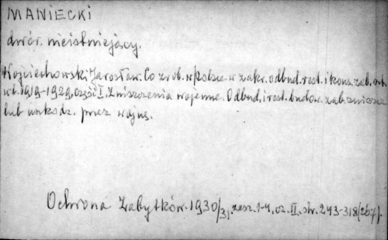 MANIECKI
dwór. nieistniejący.
Wojciechowski Jarosław. Co zrob. w Polsce w zakr. odbud. rest. i kons. zab. arch.
w l. 1919-1929, część I. Zniszczenia wojenne. Odbud. i rest. budow. zab. zniszcz.
lub uszkodz. przez wojnę.
Ochrona Zabytków. 1930/31, zesz. 1-4, cz. II, str. 243-318/267/.